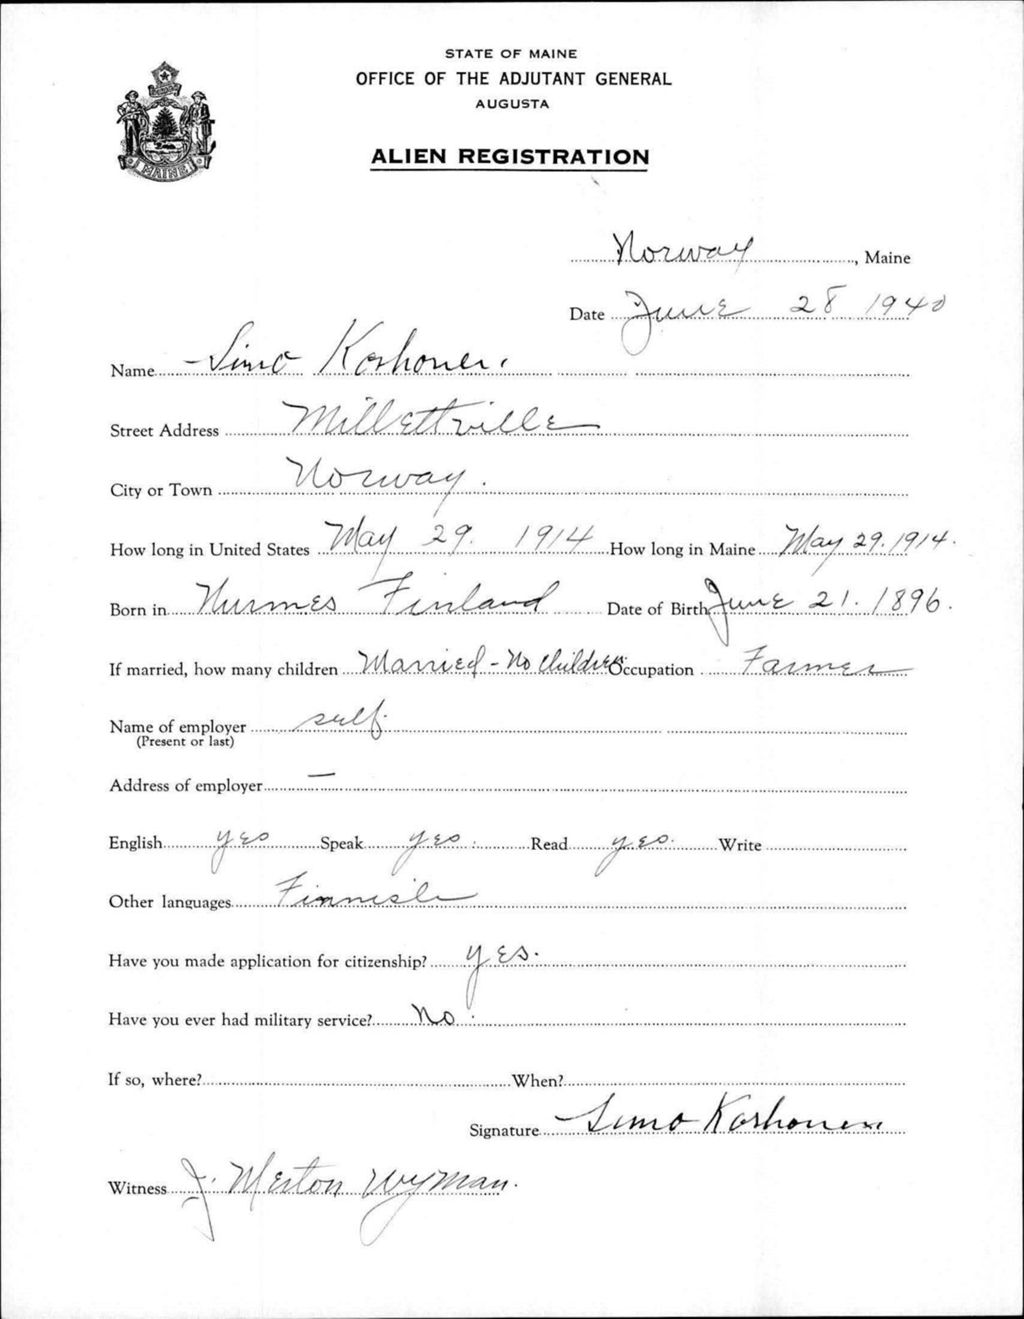 STATE OF MAINE
OFFICE OF THE ADJUTANT GENERAL
AUGUSTA
ALIEN REGISTRATION
MAINE
Norway, Maine
Date June 28 1940
Name Simo Korhonen.
Street Address Millettville
City or Town Norway.
How long in United States May 29. 1914 How long in Maine May 29. 1914.
Born in Nurmes Finland Date of Birth June 21. 1896.
If married, how many children Married - No Children Occupation Farmer
Name of employer self.
(Present or last)
Address of employer —
English yes Speak yes. Read yes. Write
Other languages Finnish
Have you made application for citizenship? yes.
Have you ever had military service? No.
If so, where? When?
Signature Simo Korhonen
Witness J. Merton Wyman.